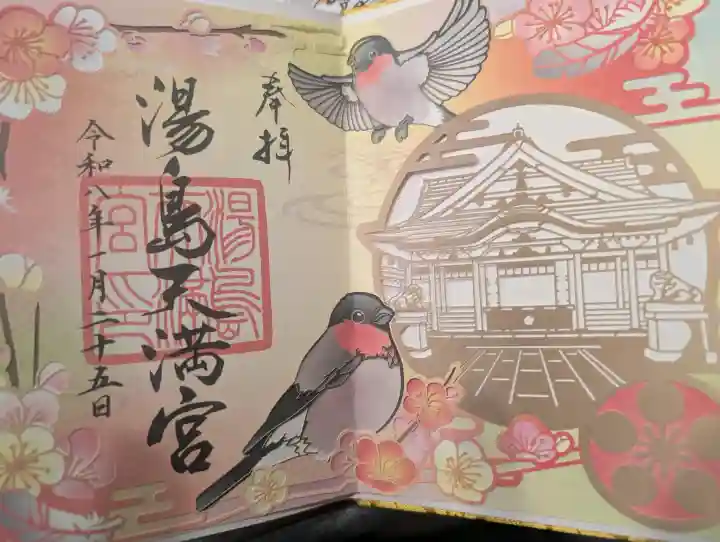 奉拝
湯島天満宮
令和八年一月二十五日